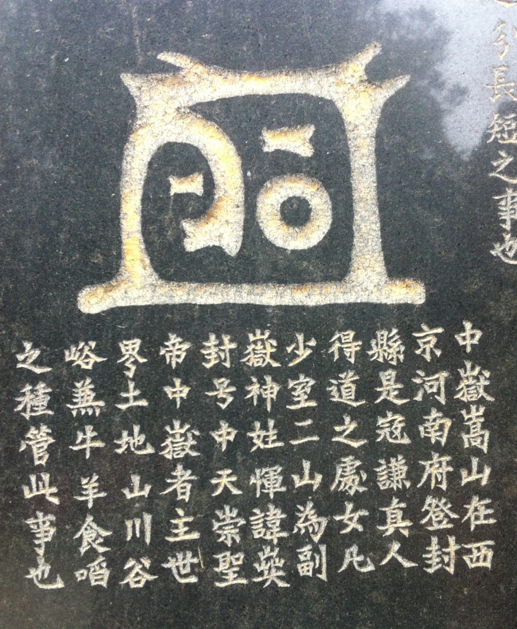 引長短之事也
中嶽嵩山在西
京河南府登封
縣是寇謙真人
得道之處女几
少室二山為副
嶽神姓惲諱
封号中天崇聖
帝中嶽者主世
界土地山川谷
峪蕪牛羊食啗
之種管此事也